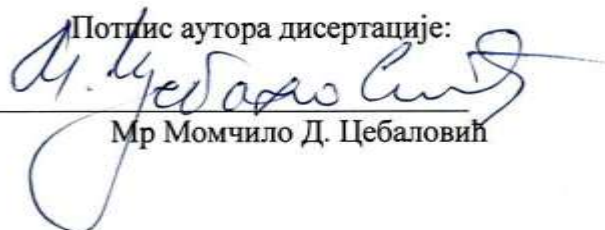 Потпис аутора дисертације:
М. Цебаловић
Мр Момчило Д. Цебаловић